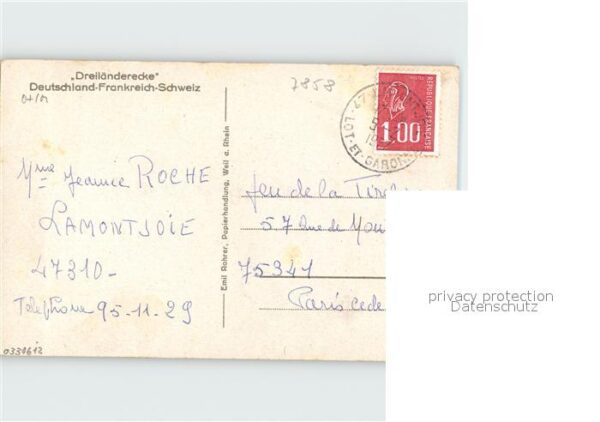 „Dreiländerecke"
Deutschland-Frankreich-Schweiz
7858
Mme Jeannie ROCHE
LAMONTJOIE
47310-
Telephone 95-11-29
0331612
Emil Rohrer, Papierhandlung, Weil a. Rhein
REPUBLIQUE FRANÇAISE
1.00
47
LOT-ET-GARONNE
Jeu de la
57 Rue de
75341
Paris cede
privacy protection
Datenschutz